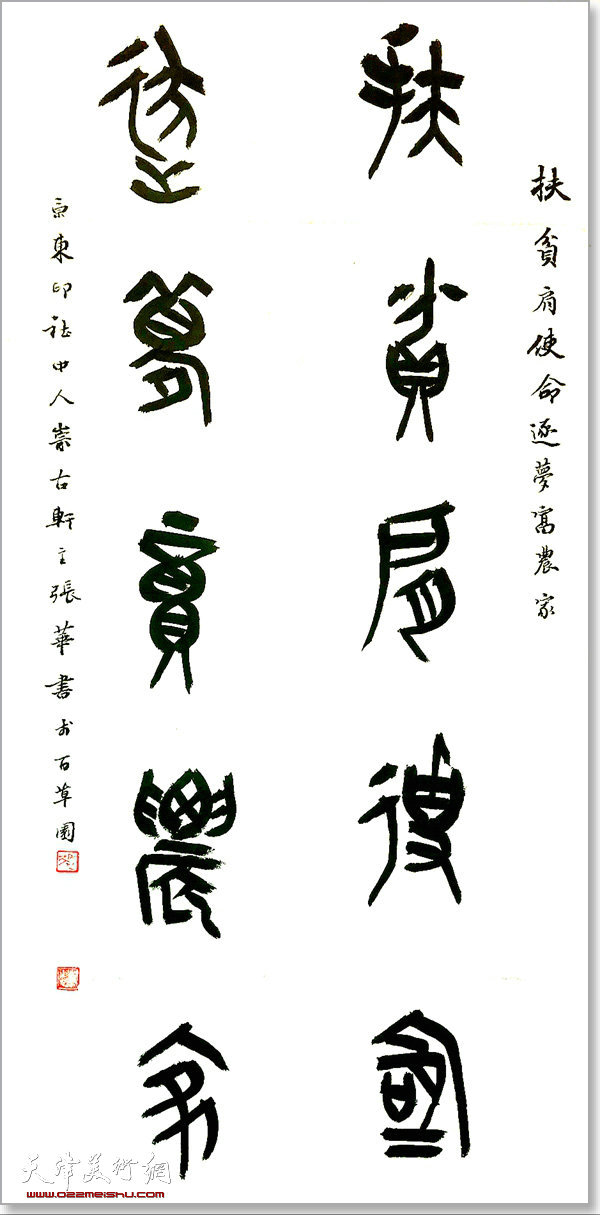 扶貧肩使命逐夢富農家
扶貧肩使命
逐夢富農家
京東印社中人崇古軒主張華書於百草園
天津美術網
www.022meishu.com